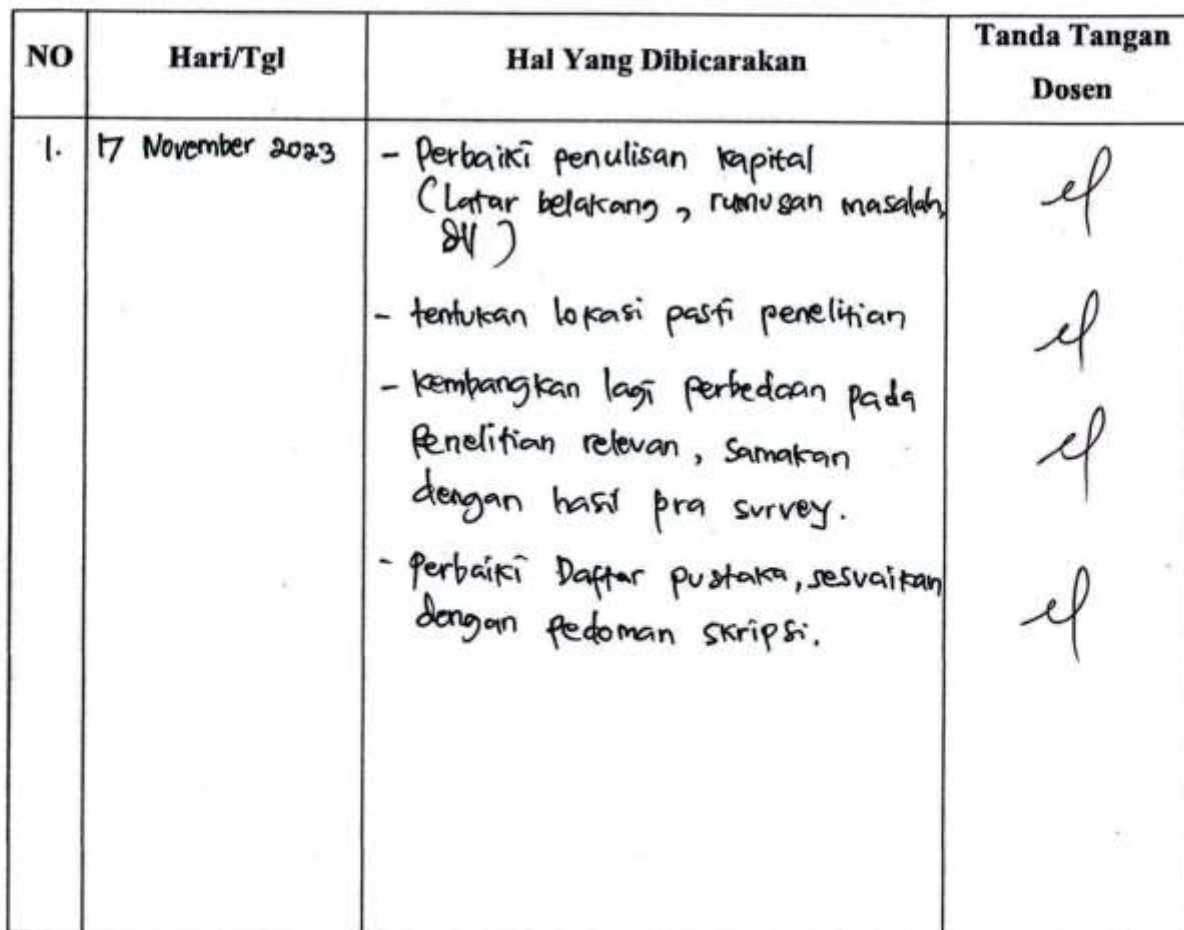 NO Hari/Tgl Hal Yang Dibicarakan Tanda Tangan
Dosen
1. 17 November 2023 - Perbaiki penulisan kapital
(Latar belakang, rumusan masalah,
dll)
- tentukan lokasi pasti penelitian
- kembangkan lagi perbedaan pada
Penelitian relevan, samakan
dengan hasil pra survey.
- Perbaiki Daftar pustaka, sesuaikan
dengan Pedoman skripsi.